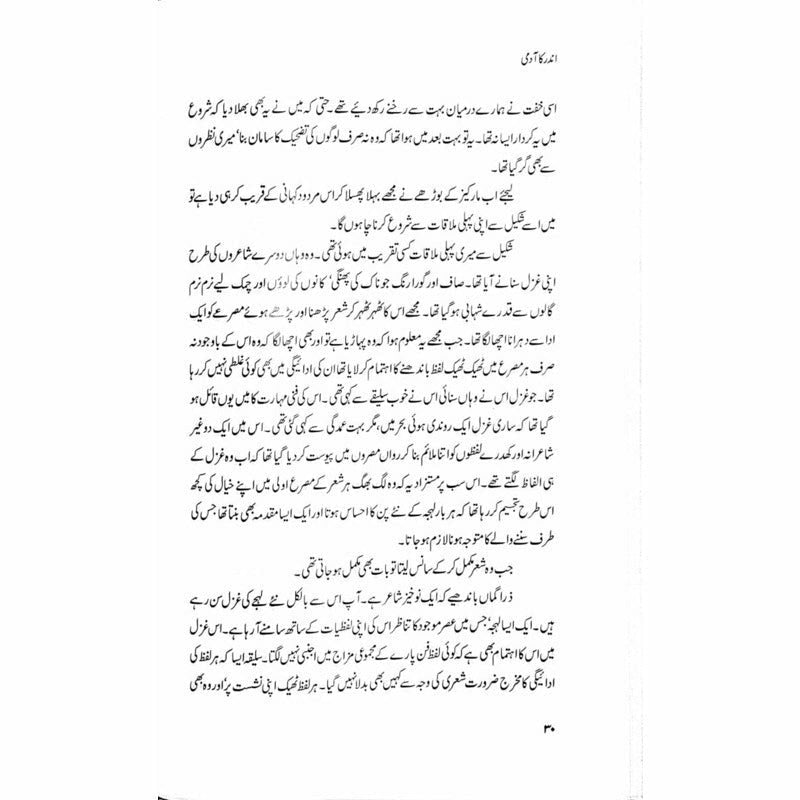 اندر کا آدمی
اسی خفت نے ہمارے درمیان بہت سے رخنے رکھ دیئے تھے۔ حتی کہ میں نے یہ بھی بھلا دیا کہ شروع
میں یہ کردار ایسا نہ تھا۔ یہ تو بہت بعد میں ہوا تھا کہ وہ نہ صرف لوگوں کی تضحیک کا سامان بنا‘ میری نظروں
سے بھی گر گیا تھا۔
لیجئے اب مارکیز کے بوڑھے نے مجھے بہلا پھسلا کر اس مردود کہانی کے قریب کر ہی دیا ہے تو
میں اسے شکیل سے اپنی پہلی ملاقات سے شروع کرنا چاہوں گا۔
شکیل سے میری پہلی ملاقات کسی تقریب میں ہوئی تھی۔ وہ وہاں دوسرے شاعروں کی طرح
اپنی غزل سنانے آیا تھا۔ صاف اور گورا رنگ جو ناک کی پھنگی‘ کانوں کی لوؤں اور چمک لیے نرم نرم
گالوں سے قدرے شہابی ہو گیا تھا۔ مجھے اس کا ٹھہر ٹھہر کر شعر پڑھنا اور پڑھے ہوئے مصرعے کو ایک
ادا سے دہرانا اچھا لگا تھا۔ جب مجھے یہ معلوم ہوا کہ وہ پہاڑیا ہے تو اور بھی اچھا لگا کہ وہ اس کے باوجود نہ
صرف ہر مصرع میں ٹھیک ٹھیک لفظ باندھنے کا اہتمام کر لایا تھا ان کی ادائیگی میں بھی کوئی غلطی نہیں کر رہا
تھا۔ جو غزل اس نے وہاں سنائی اس نے خوب سلیقے سے کہی تھی۔ اس کی فنی مہارت کا میں یوں قائل ہو
گیا تھا کہ ساری غزل ایک روندی ہوئی بحر میں، مگر بہت عمدگی سے کہی گئی تھی۔ اس میں ایک دو غیر
شاعرانہ اور کھدرے لفظوں کو اتنا ملائم بنا کر رواں مصروں میں پیوست کر دیا گیا تھا کہ اب وہ غزل کے
ہی الفاظ لگتے تھے۔ اس سب پر مستزاد یہ کہ وہ لگ بھگ ہر شعر کے مصرع اولی میں اپنے خیال کی کچھ
اس طرح تجسیم کر رہا تھا کہ ہر بار لہجہ کے نئے پن کا احساس ہوتا اور ایک ایسا مقدمہ بھی بنتا تھا جس کی
طرف سننے والے کا متوجہ ہونا لازم ہو جاتا۔
جب وہ شعر مکمل کر کے سانس لیتا تو بات بھی مکمل ہو جاتی تھی۔
ذرا گماں باندھیے کہ ایک نو خیز شاعر ہے۔ آپ اس سے بالکل نئے لہجے کی غزل سن رہے
ہیں۔ ایک ایسا لہجہ‘ جس میں عصر موجود کا تناظر اس کی اپنی لفظیات کے ساتھ سامنے آ رہا ہے۔ اس غزل
میں اس کا اہتمام بھی ہے کہ کوئی لفظ فن پارے کے مجموعی مزاج میں اجنبی نہیں لگتا۔ سلیقہ ایسا کہ ہر لفظ کی
ادائیگی کا مخرج ضرورت شعری کی وجہ سے کہیں بھی بدلا نہیں گیا۔ ہر لفظ ٹھیک اپنی نشست پر‘ اور وہ بھی
۳۰